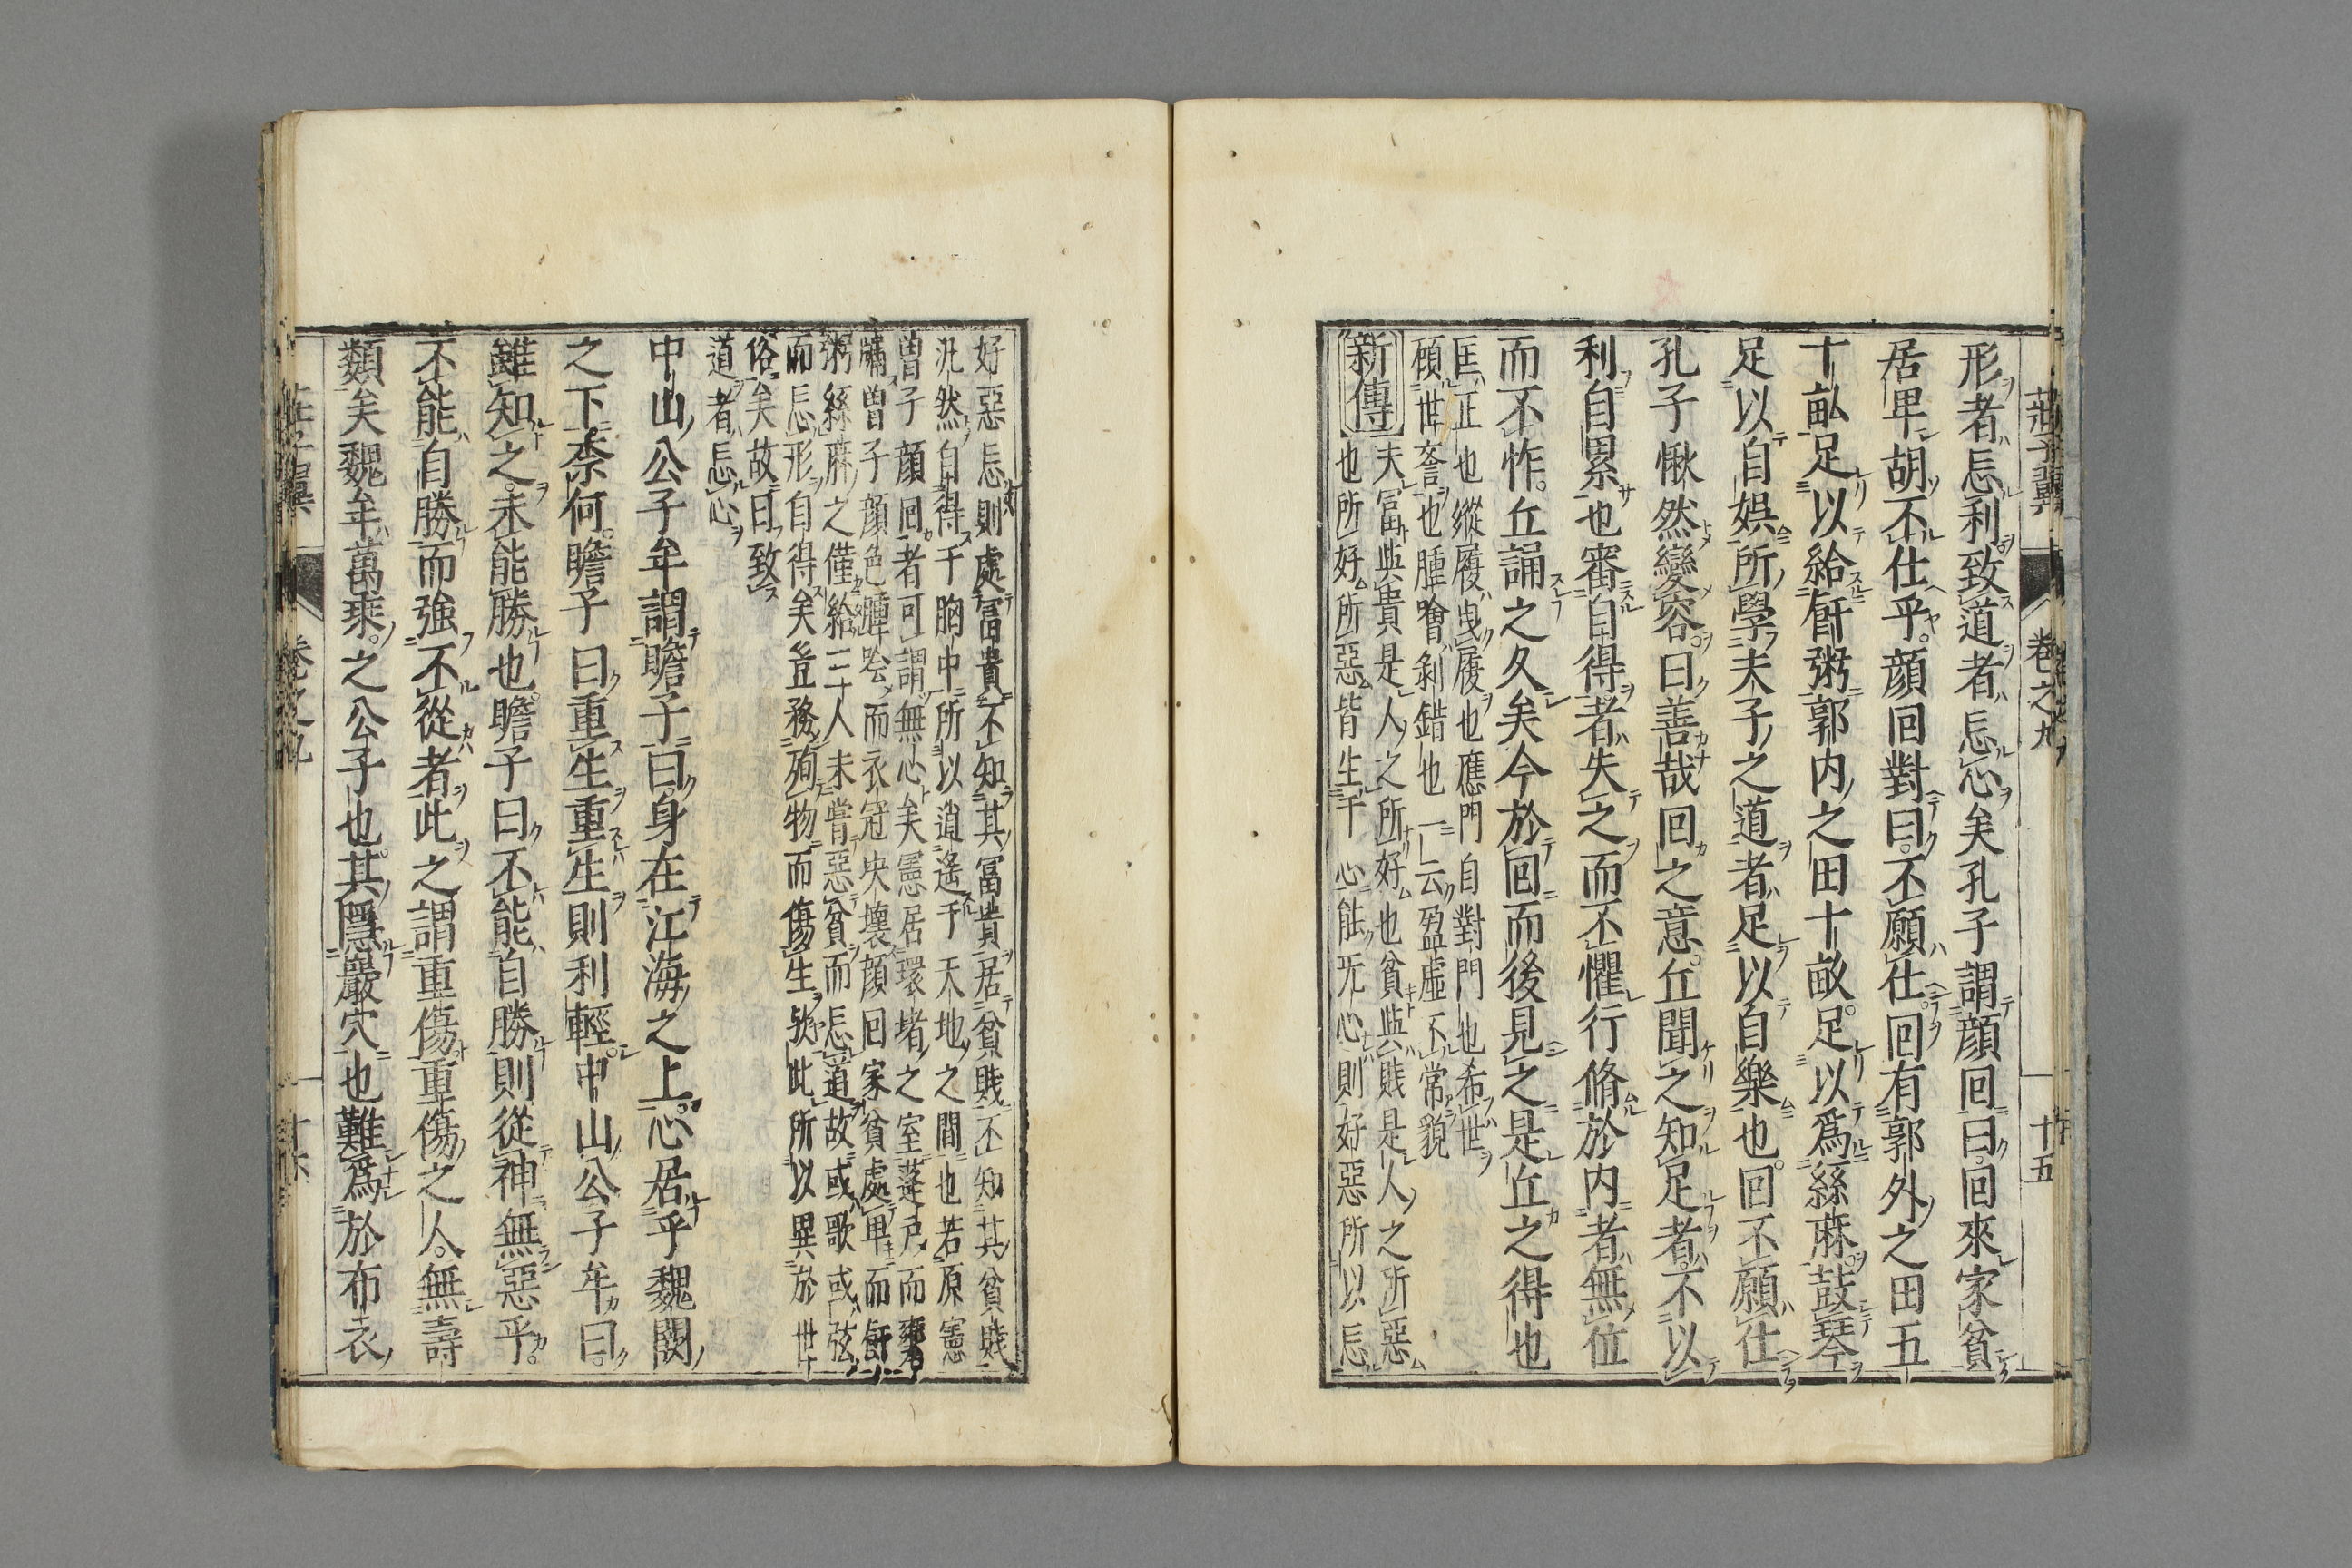 莊子翼 卷之九 十五
形者忘利致道者忘心矣孔子謂顔回曰回來家貧
居卑胡不仕乎顔回對曰不願仕回有郭外之田五
十畝足以給飦粥郭內之田十畝足以爲絲麻鼓琴
足以自娯所學夫子之道者足以自樂也回不願仕
孔子愀然變容曰善哉回之意丘聞之知足者不以
利自累也審自得者失之而不懼行脩於内者無位
而不怍丘誦之久矣今於回而後見之是丘之得也
匡正也縱履曳履也應門自對門也希世
顧世譽也腫噲剝錯也一云盈虛不常貌
新傳 夫冨與貴是人之所好也貧與賎是人之所惡
也所好所惡皆生于心能旡心則好惡所以忘
好惡忘則處冨貴不知其冨貴居貧賎不知其貧賎
汎然自得于胸中所以逍遙于天地之間也若原憲
曽子顔回者可謂無心矣憲居環堵之室蓬户而
牖曽子顔色腫噲而衣冠央壊顔回家貧處卑而飦
粥絲麻之僅給三人未嘗惡貧而忘道故或歌或弦
而忘形自得矣豈務殉物而傷生哉此所以異於世
俗矣故曰致
道者忘心
中山公子牟謂瞻子曰身在江海之上心居乎魏闕
之下柰何瞻子曰重生重生則利輕中山公子牟曰
雖知之未能勝也瞻子曰不能自勝則從神無惡乎
不能自勝而強不從者此之謂重傷重傷之人無壽
類矣魏牟萬乗之公子也其隱巖穴也難爲於布衣
莊子翼 卷之九 十六